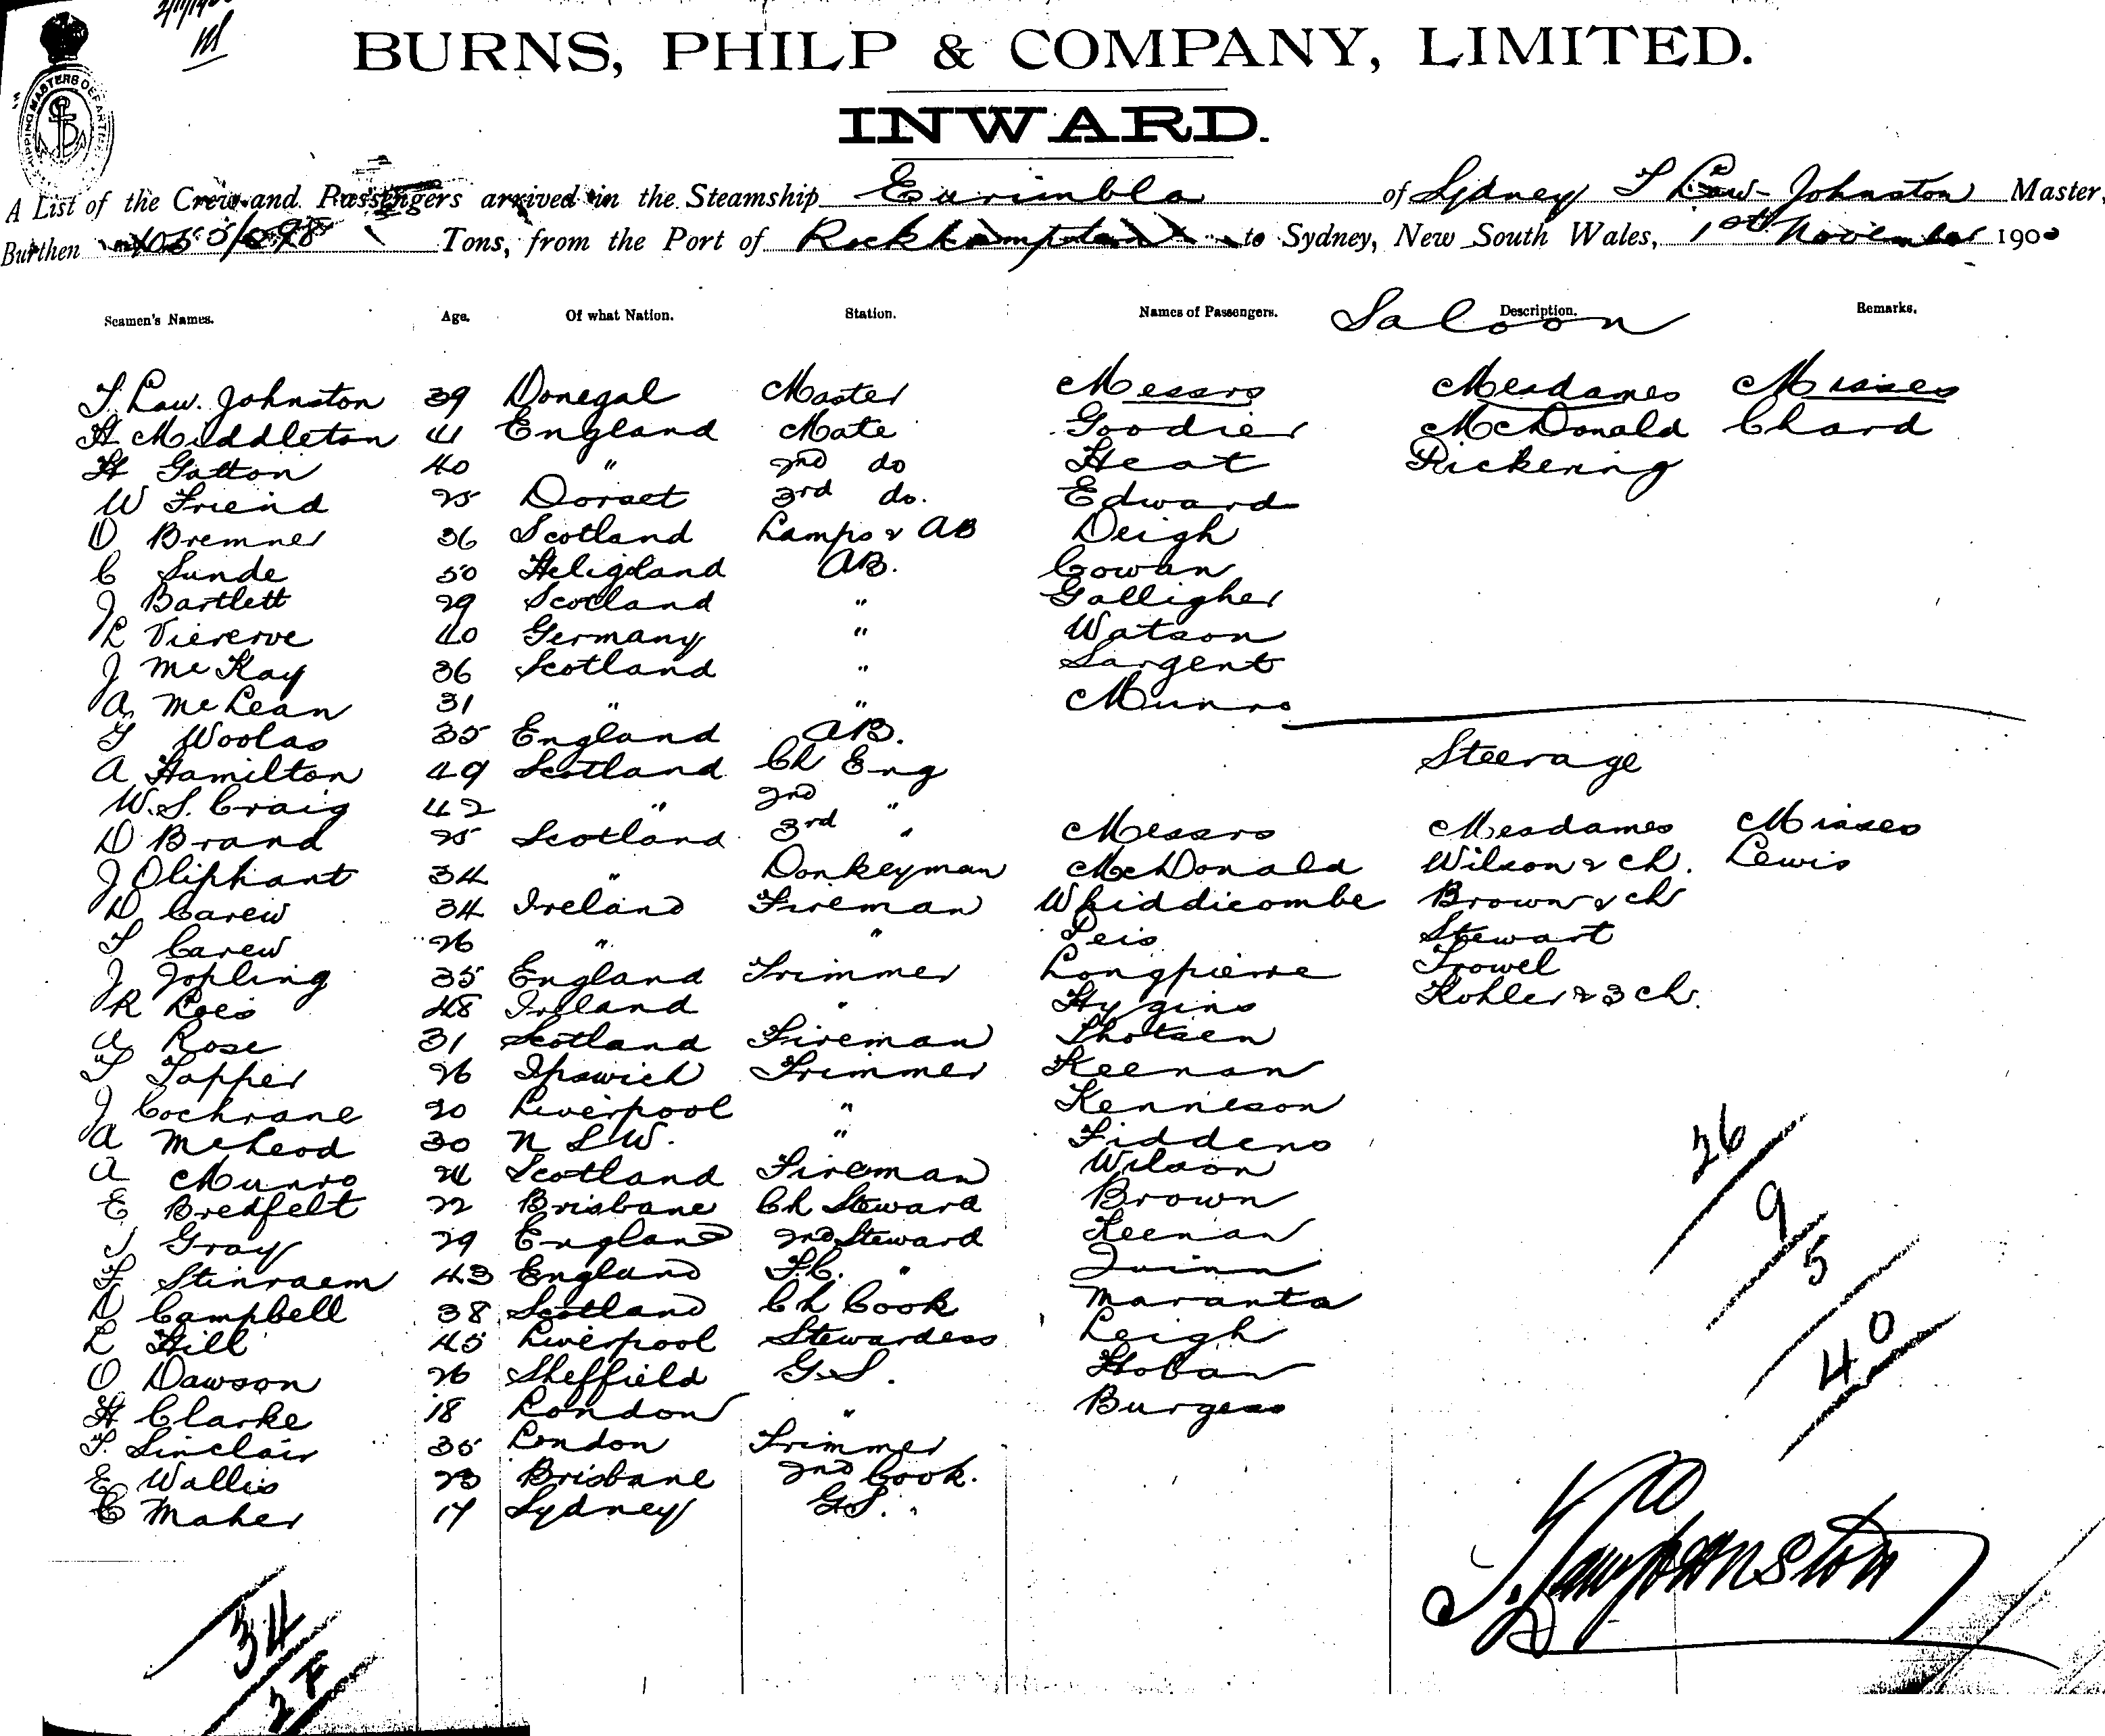 BURNS, PHILP & COMPANY, LIMITED.
INWARD.
SHIPPING MASTERS DEPART
A List of the Crew and Passengers arrived in the Steamship Eurimbla of Sydney T Law-Johnston Master,
Burthen Tons, from the Port of Rockhampton to Sydney, New South Wales, 1st November 1900
Seamen's Names. Age. Of what Nation. Station. Names of Passengers. Description. Remarks.
Saloon
T. Law. Johnston 39 Donegal Master Messrs Mesdames Misses
H Middleton 41 England Mate Goodier McDonald Chard
H Gatton 40 " 2nd do Heat Pickering
W Friend 25 Dorset 3rd do. Edward
D Bremner 36 Scotland Lamps & AB Deigh
C Sunde 50 Heligoland AB. Cowan
J Bartlett 29 Scotland " Galligher
L Viererve 40 Germany " Watson
J McKay 36 Scotland " Sargent
A McLean 31 " " Munro
T Woolas 35 England AB.
A Hamilton 49 Scotland Ch Eng Steerage
W.S. Craig 42 " 2nd "
D Brand 25 Scotland 3rd " Messrs Mesdames Misses
J Oliphant 34 " Donkeyman McDonald Wilson & ch. Lewis
D Carew 34 Ireland Fireman Whiddicombe Brown & ch
T Carew 26 " " Peis Stewart
J Jopling 35 England Trimmer Longpierre Trowel
R Rees 48 Ireland " Hygins Kohler & 3 ch.
A Rose 31 Scotland Fireman Shotsen
T Tapper 26 Ipswich Trimmer Keenan
J Cochrane 20 Liverpool " Kennison
A McLeod 30 N S W. " Fiddens
A Munro 24 Scotland Fireman Wilson
E Bredfelt 22 Brisbane Ch Steward Brown
J Gray 29 England 2nd Steward Keenan
F Stinraem 43 England F.C. " Quinn
D Campbell 38 Scotland Ch Cook Maranta
L Hill 45 Liverpool Stewardess Leigh
O Dawson 26 Sheffield G.S. Hoban
H Clarke 18 London " Burgess
T. Sinclair 35 London Trimmer
E Wallis 23 Brisbane 2nd Cook.
C Maher 17 Sydney G.S.
26
9
5
40
T. Law Johnston
34
2F